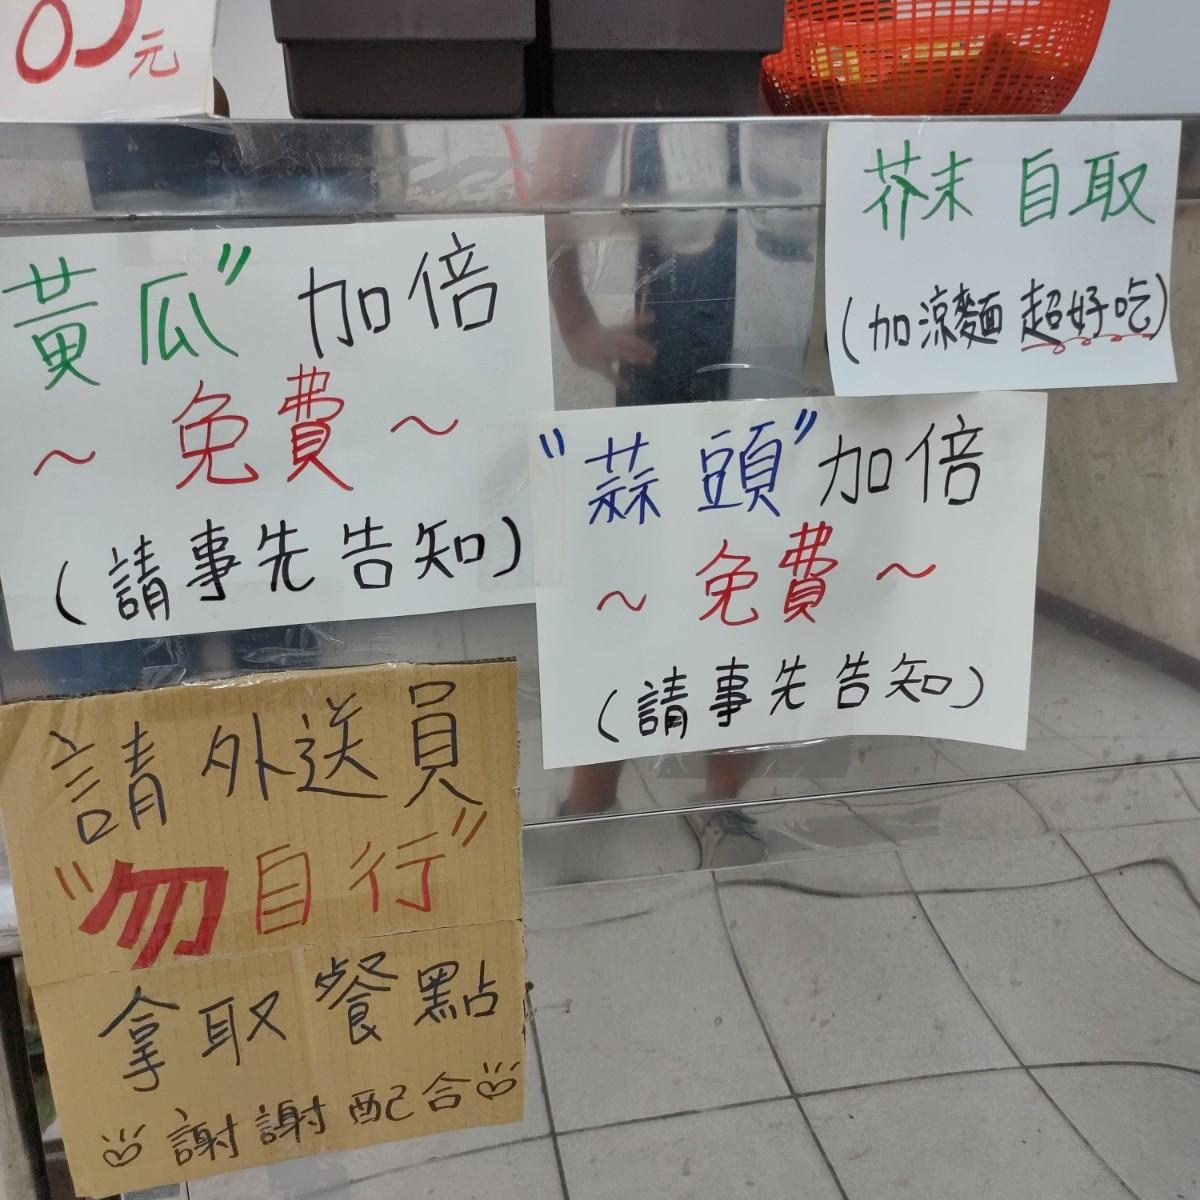 元
黃瓜” 加倍
～免費～
(請事先告知)
芥末 自取
(加涼麵 超好吃)
“蒜頭”加倍
～免費～
(請事先告知)
請外送員
“勿自行”
拿取餐點
謝謝配合